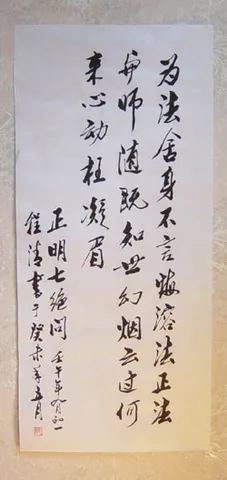 为法舍身不言悔溶法正法
与师随既知世幻烟云过何
来心动枉凝眉
正明七绝问 壬午年九月初一
程清书于癸未年五月